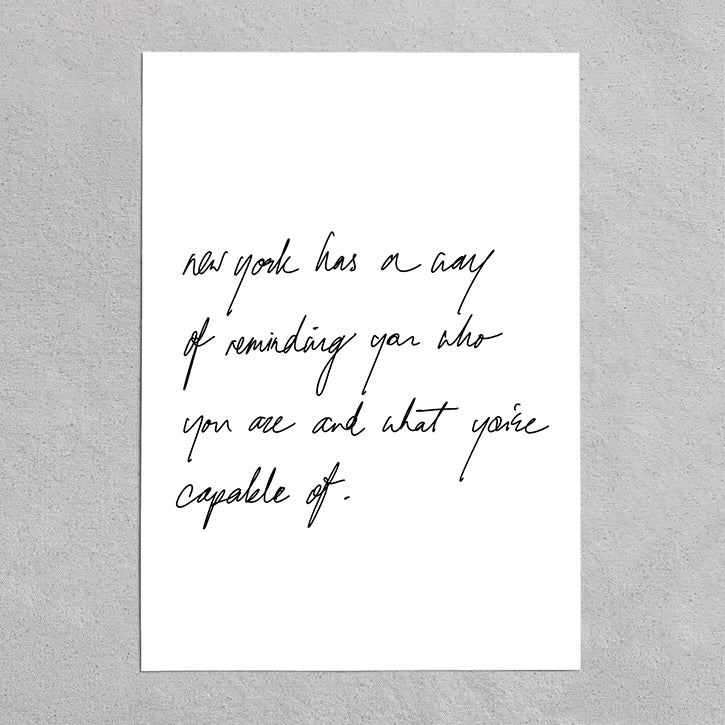 new york has a way
of reminding you who
you are and what you're
capable of.